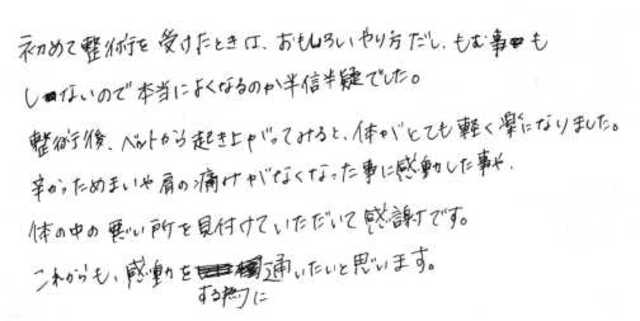 初めて整術を受けたときは、おもしろいやり方だし、もむ事も
しないので本当によくなるのか半信半疑でした。
整術後、ベットから起き上がってみると、体がとても軽く楽になりました。
辛かっためまいや肩の痛みがなくなった事に感動した事や、
体の中の悪い所を見付けていただいて感謝です。
これからも、感動を通いたいと思います。
する為に